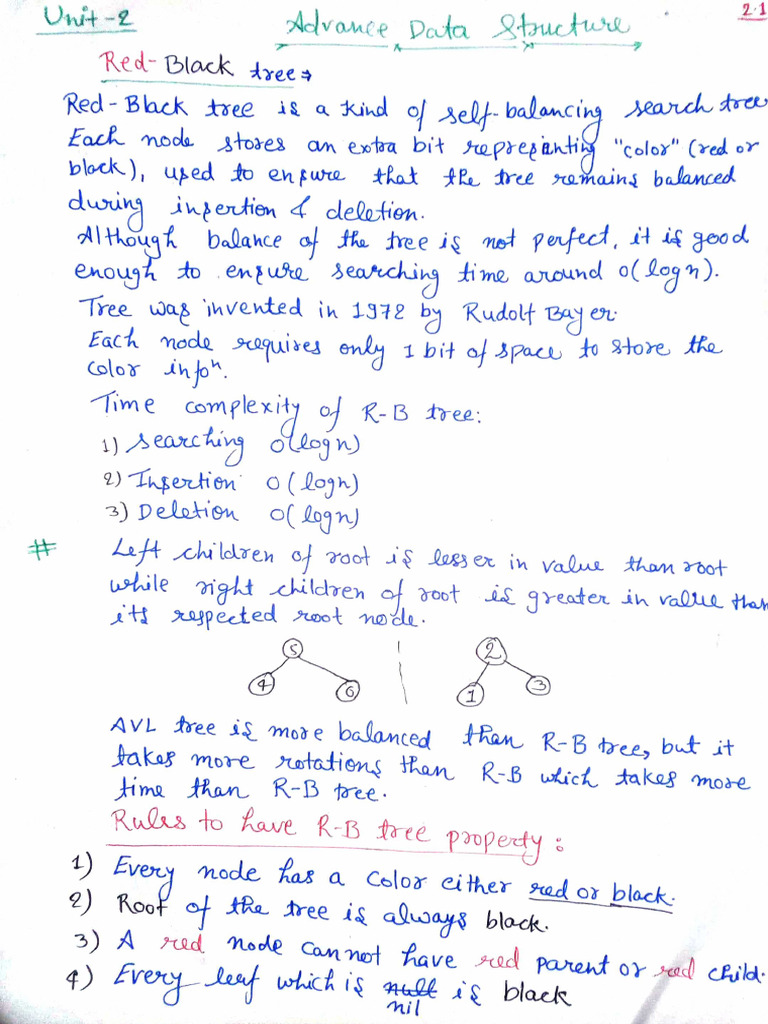 Unit-2
Advance Data Structure
2.1
Red-Black tree⇒
Red-Black tree is a kind of self-balancing search tree
Each node stores an extra bit represinting "color" (red or
black), used to ensure that the tree remains balanced
during insertion & deletion.
Although balance of the tree is not perfect, it is good
enough to ensure searching time around o(logn).
Tree was invented in 1972 by Rudolf Bayer.
Each node requires only 1 bit of space to store the
color infoⁿ.
Time complexity of R-B tree:
1) Searching o(logn)
2) Insertion o(logn)
3) Deletion o(logn)
# Left children of root is lesser in value than root
while right children of root is greater in value than
its respected root node.
5 2
4 6 1 3
AVL tree is more balanced than R-B tree, but it
takes more rotations than R-B which takes more
time than R-B tree.
Rules to have R-B tree property:
1) Every node has a color either red or black.
2) Root of the tree is always black.
3) A red node cannot have red parent or red child.
4) Every leaf which is null is black
nil